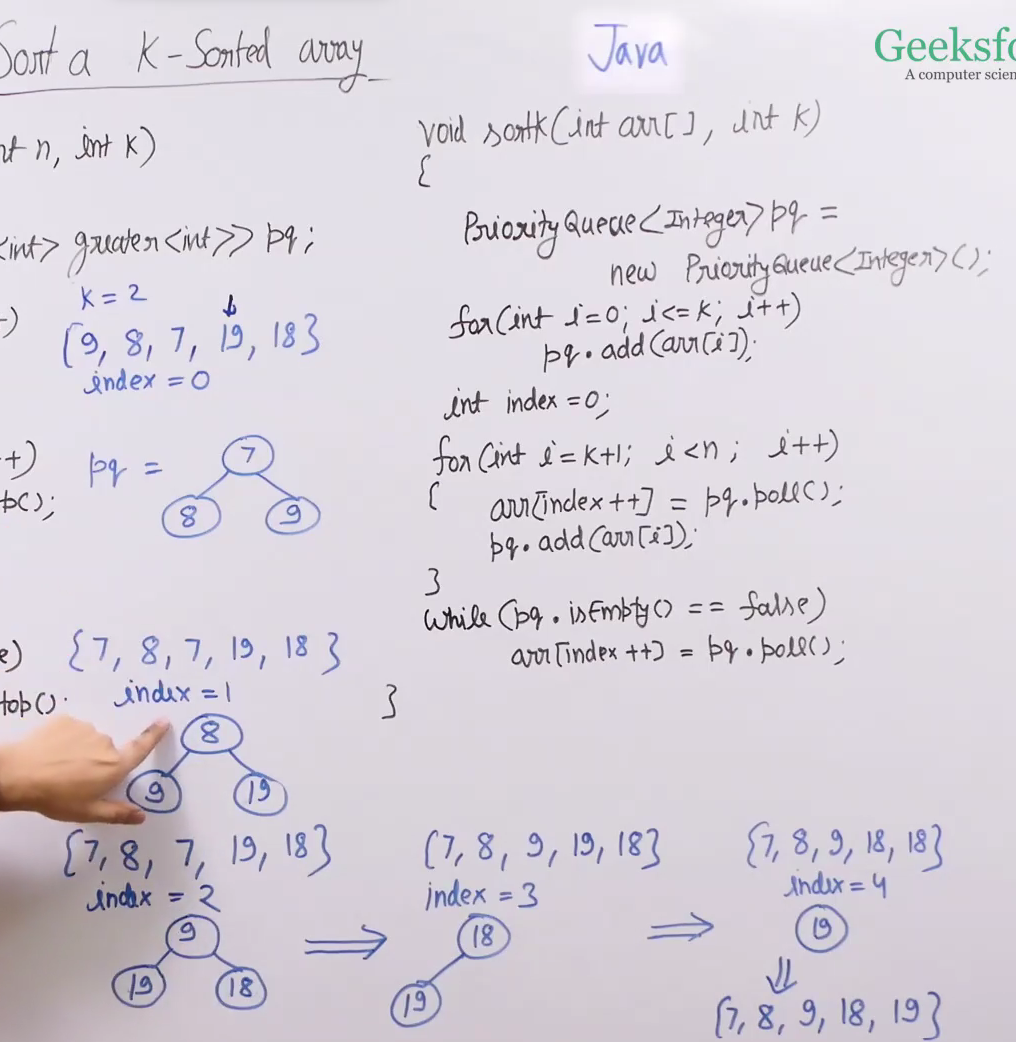 Sort a K-Sorted array
Java
Geeksfo
A computer scien
nt n, int k)
<int> greater<int>> pq;
K = 2
-)
{9, 8, 7, 19, 18}
index = 0
+)
pq =
7
8 9
op();
e)
{7, 8, 7, 19, 18}
top()
index = 1
8
9 19
{7, 8, 7, 19, 18}
index = 2
9
19 18
void sortk(int arr[], int k)
{
PriorityQueue<Integer> pq =
new PriorityQueue<Integer>();
for(int i=0; i<=k; i++)
pq.add(arr[i]);
int index = 0;
for(int i=k+1; i<n; i++)
{ arr[index++] = pq.poll();
pq.add(arr[i]);
}
while(pq.isEmpty() == false)
arr[index++] = pq.poll();
}
{7, 8, 9, 19, 18}
index = 3
18
19
{7, 8, 9, 18, 18}
index = 4
19
{7, 8, 9, 18, 19}